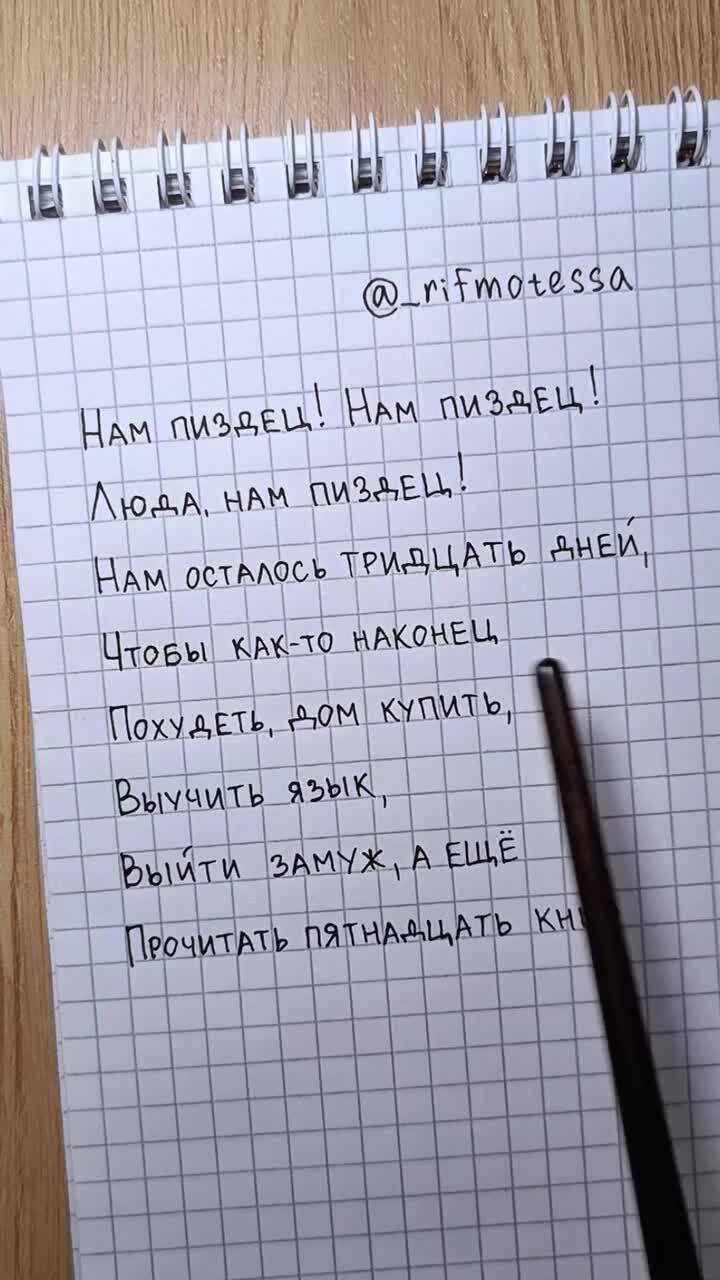 @_rifmotessa
Нам пиздец! Нам пиздец!
Люда, нам пиздец!
Нам осталось тридцать дней,
Чтобы как-то наконец
Похудеть, дом купить,
Выучить язык,
Выйти замуж, а ещё
Прочитать пятнадцать